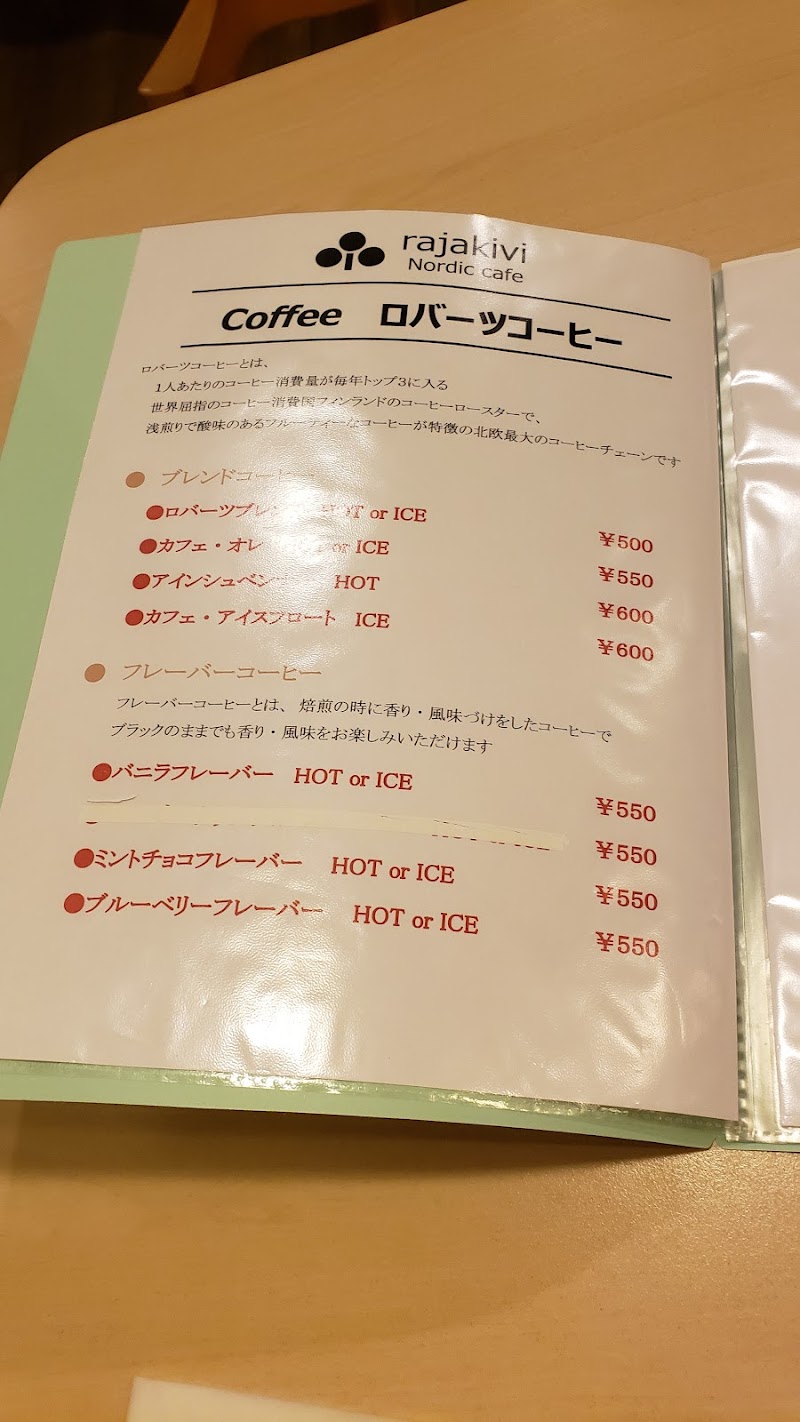 rajakivi
Nordic cafe
Coffee ロバーツコーヒー
ロバーツコーヒーとは、
1人あたりのコーヒー消費量が毎年トップ3に入る
世界屈指のコーヒー消費国フィンランドのコーヒーロースターで、
浅煎りで酸味のあるフルーティーなコーヒーが特徴の北欧最大のコーヒーチェーンです
● ブレンドコーヒー
●ロバーツブレンド HOT or ICE ¥500
●カフェ・オレ or ICE ¥550
●アインシュペン HOT ¥600
●カフェ・アイスフロート ICE ¥600
● フレーバーコーヒー
フレーバーコーヒーとは、焙煎の時に香り・風味づけをしたコーヒーで
ブラックのままでも香り・風味をお楽しみいただけます
●バニラフレーバー HOT or ICE ¥550
¥550
●ミントチョコフレーバー HOT or ICE ¥550
●ブルーベリーフレーバー HOT or ICE ¥550